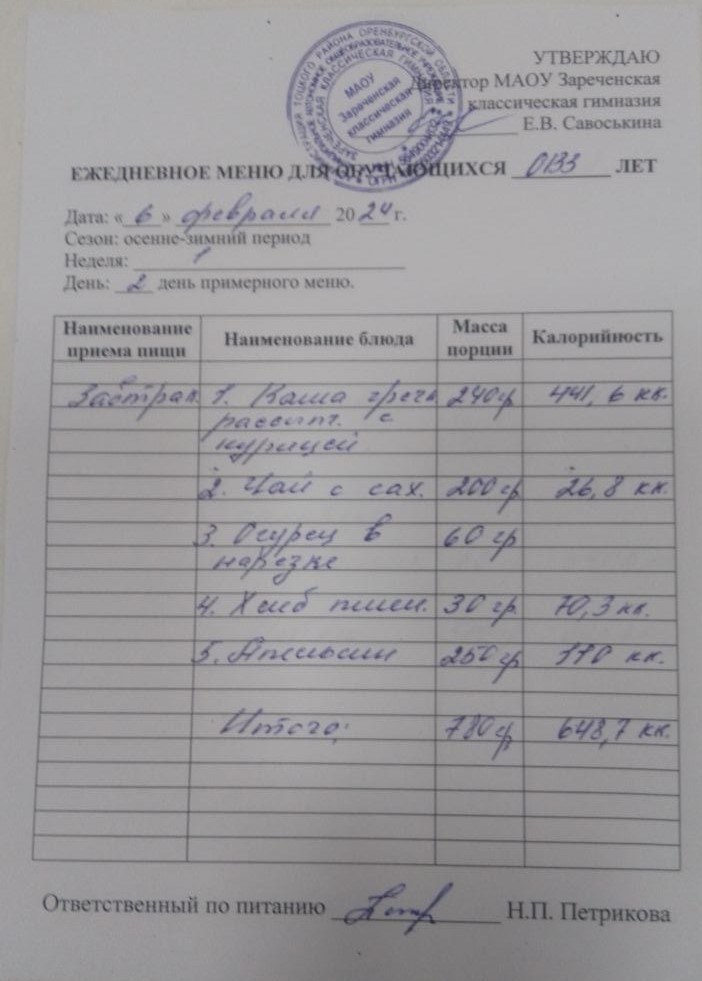 УТВЕРЖДАЮ
Директор МАОУ Зареченская
классическая гимназия
Е.В. Савоськина
МАОУ
Зареченская
классическая
гимназия
ЕЖЕДНЕВНОЕ МЕНЮ ДЛЯ ОБУЧАЮЩИХСЯ ОВЗ ЛЕТ
Дата: « 6 » февраля 20 24 г.
Сезон: осенне-зимний период
Неделя: 1
День: 2 день примерного меню.
Наименование приема пищи Наименование блюда Масса порции Калорийность
Завтрак 1. Каша гречн 240 гр 441,6 кк.
рассыпч. с
курицей
2. Чай с сах. 200 гр 26,8 кк.
3. Огурец в 60 гр
нарезке
4. Хлеб пшен. 30 гр. 70,3 кк.
5. Апельсин 250 гр 110 кк.
Итого: 780 гр 648,7 кк.
Ответственный по питанию Н.П. Петрикова